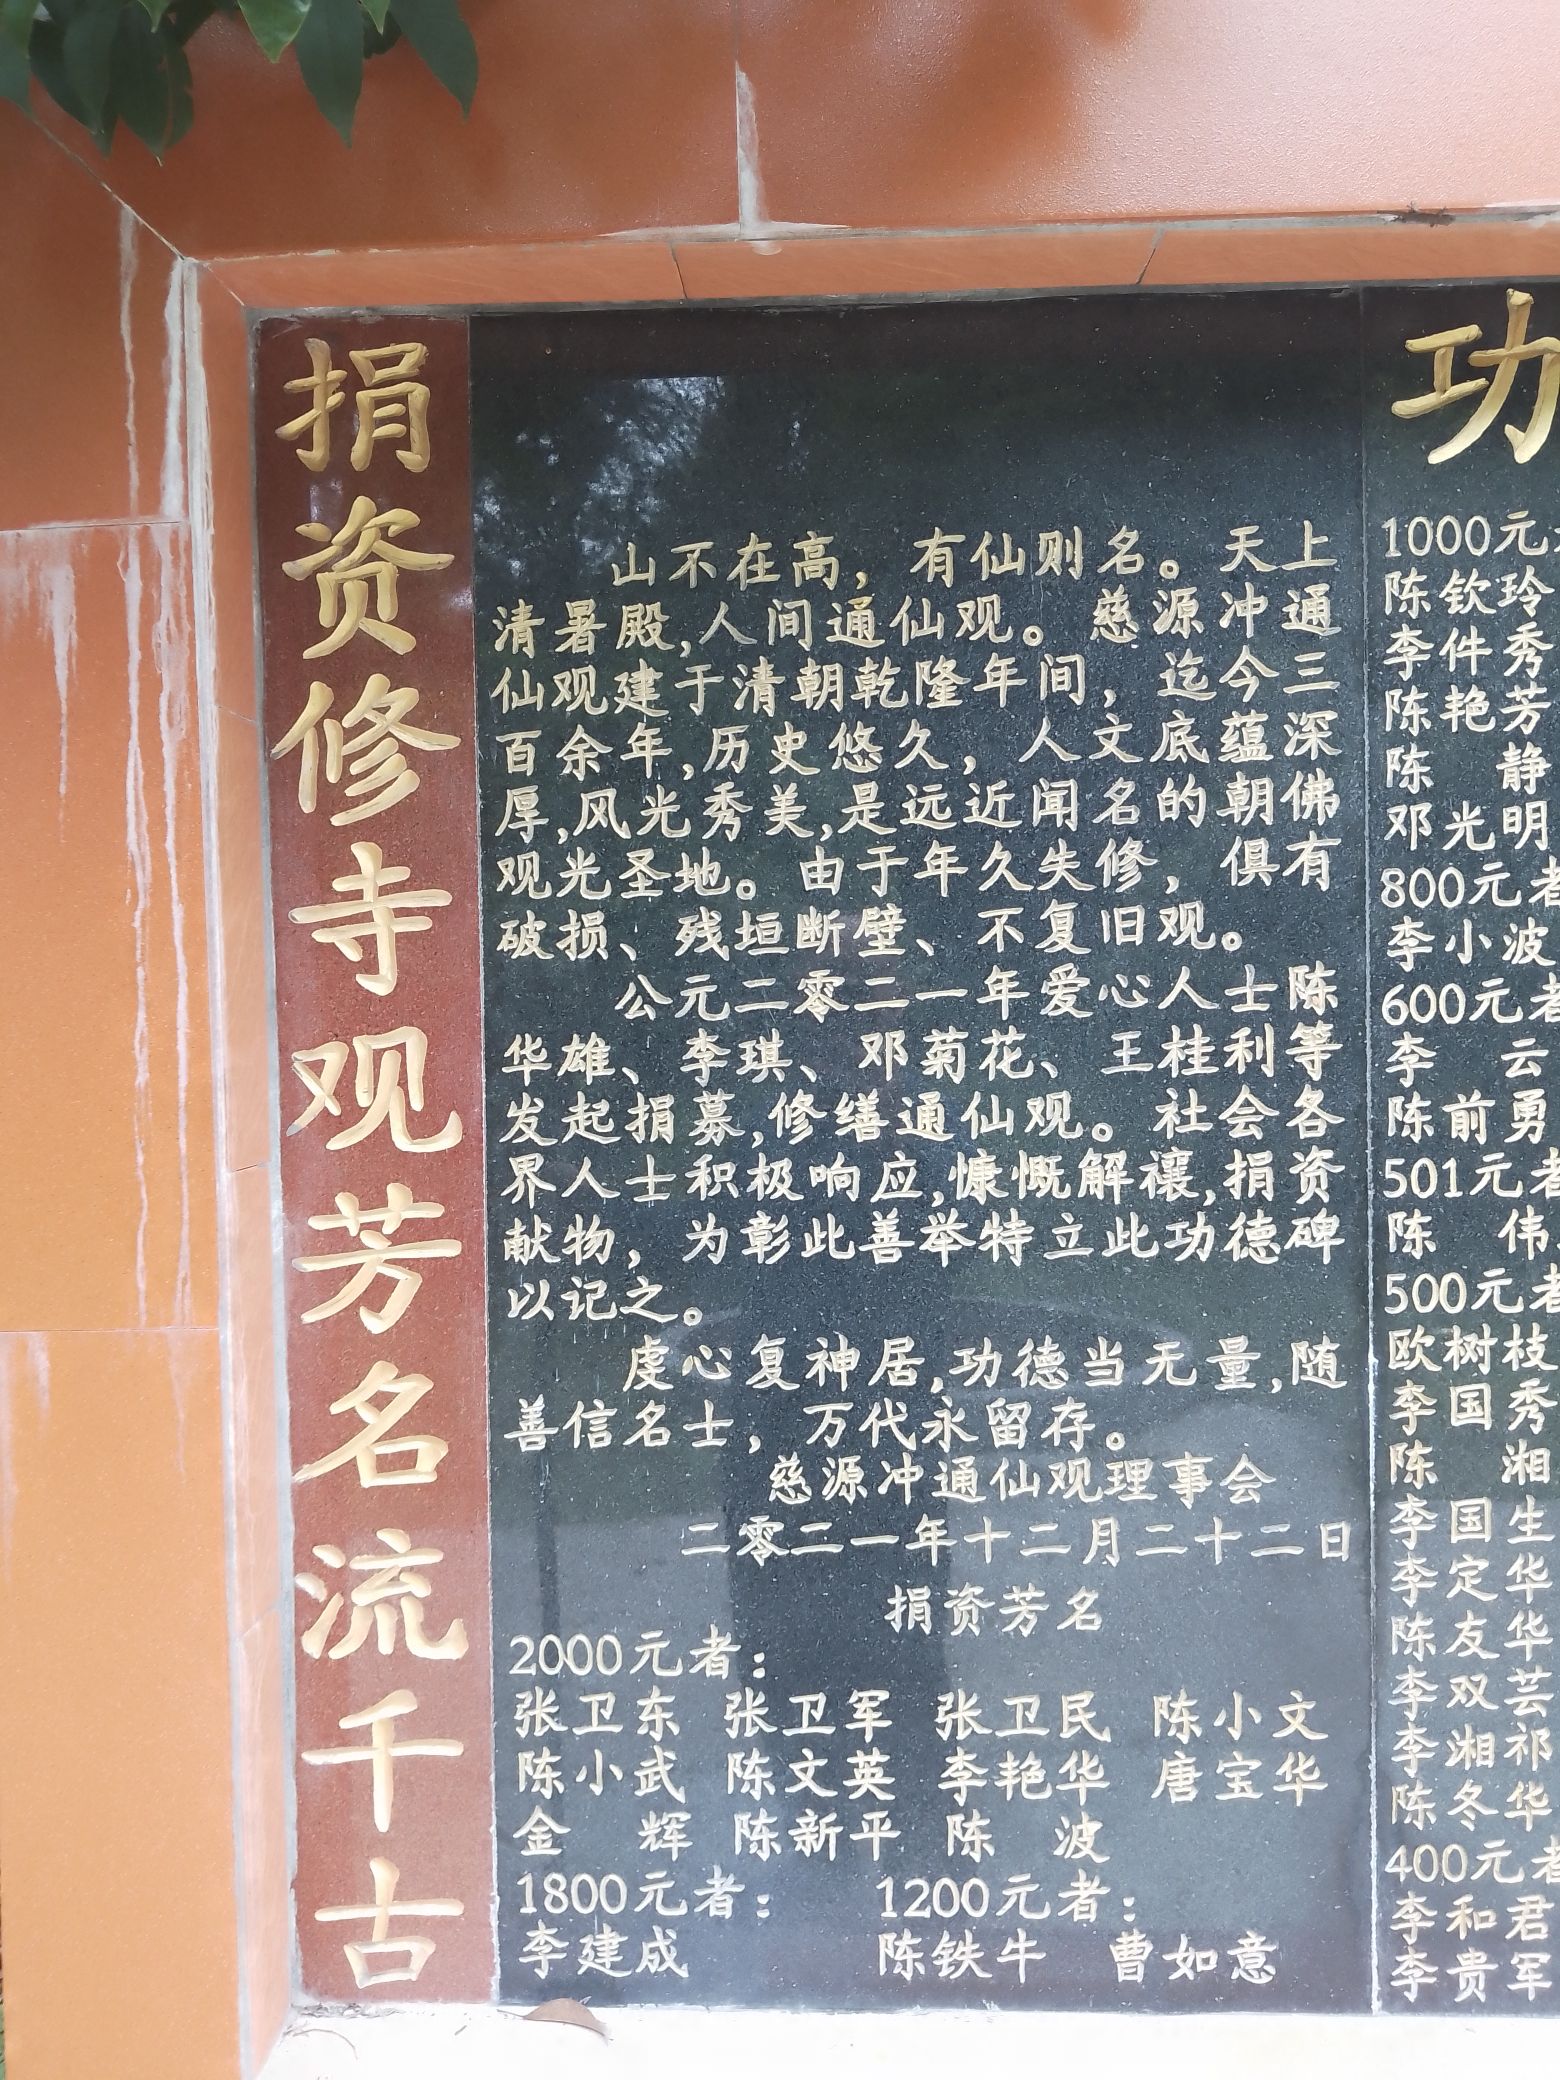 捐资修寺观芳名流千古
山不在高，有仙则名。天上
清暑殿,人间通仙观。慈源冲通
仙观建于清朝乾隆年间，迄今三
百余年,历史悠久，人文底蕴深
厚,风光秀美,是远近闻名的朝佛
观光圣地。由于年久失修，俱有
破损、残垣断壁、不复旧观。
公元二零二一年爱心人士陈
华雄、李琪、邓菊花、王桂利等
发起捐募,修缮通仙观。社会各
界人士积极响应,慷慨解禳,捐资
献物，为彰此善举特立此功德碑
以记之。
虔心复神居,功德当无量,随
善信名士，万代永留存。
慈源冲通仙观理事会
二零二一年十二月二十二日
捐资芳名
2000元者：
张卫东 张卫军 张卫民 陈小文
陈小武 陈文英 李艳华 唐宝华
金 辉 陈新平 陈 波
1800元者： 1200元者：
李建成 陈铁牛 曹如意
功
1000元
陈钦玲
李件秀
陈艳芳
陈 静
邓光明
800元者
李小波
600元者
李 云
陈前勇
501元者
陈 伟
500元者
欧树枝
李国秀
陈 湘
李国生
李定华
陈友华
李双芸
李湘祁
陈冬华
400元者
李和君
李贵军